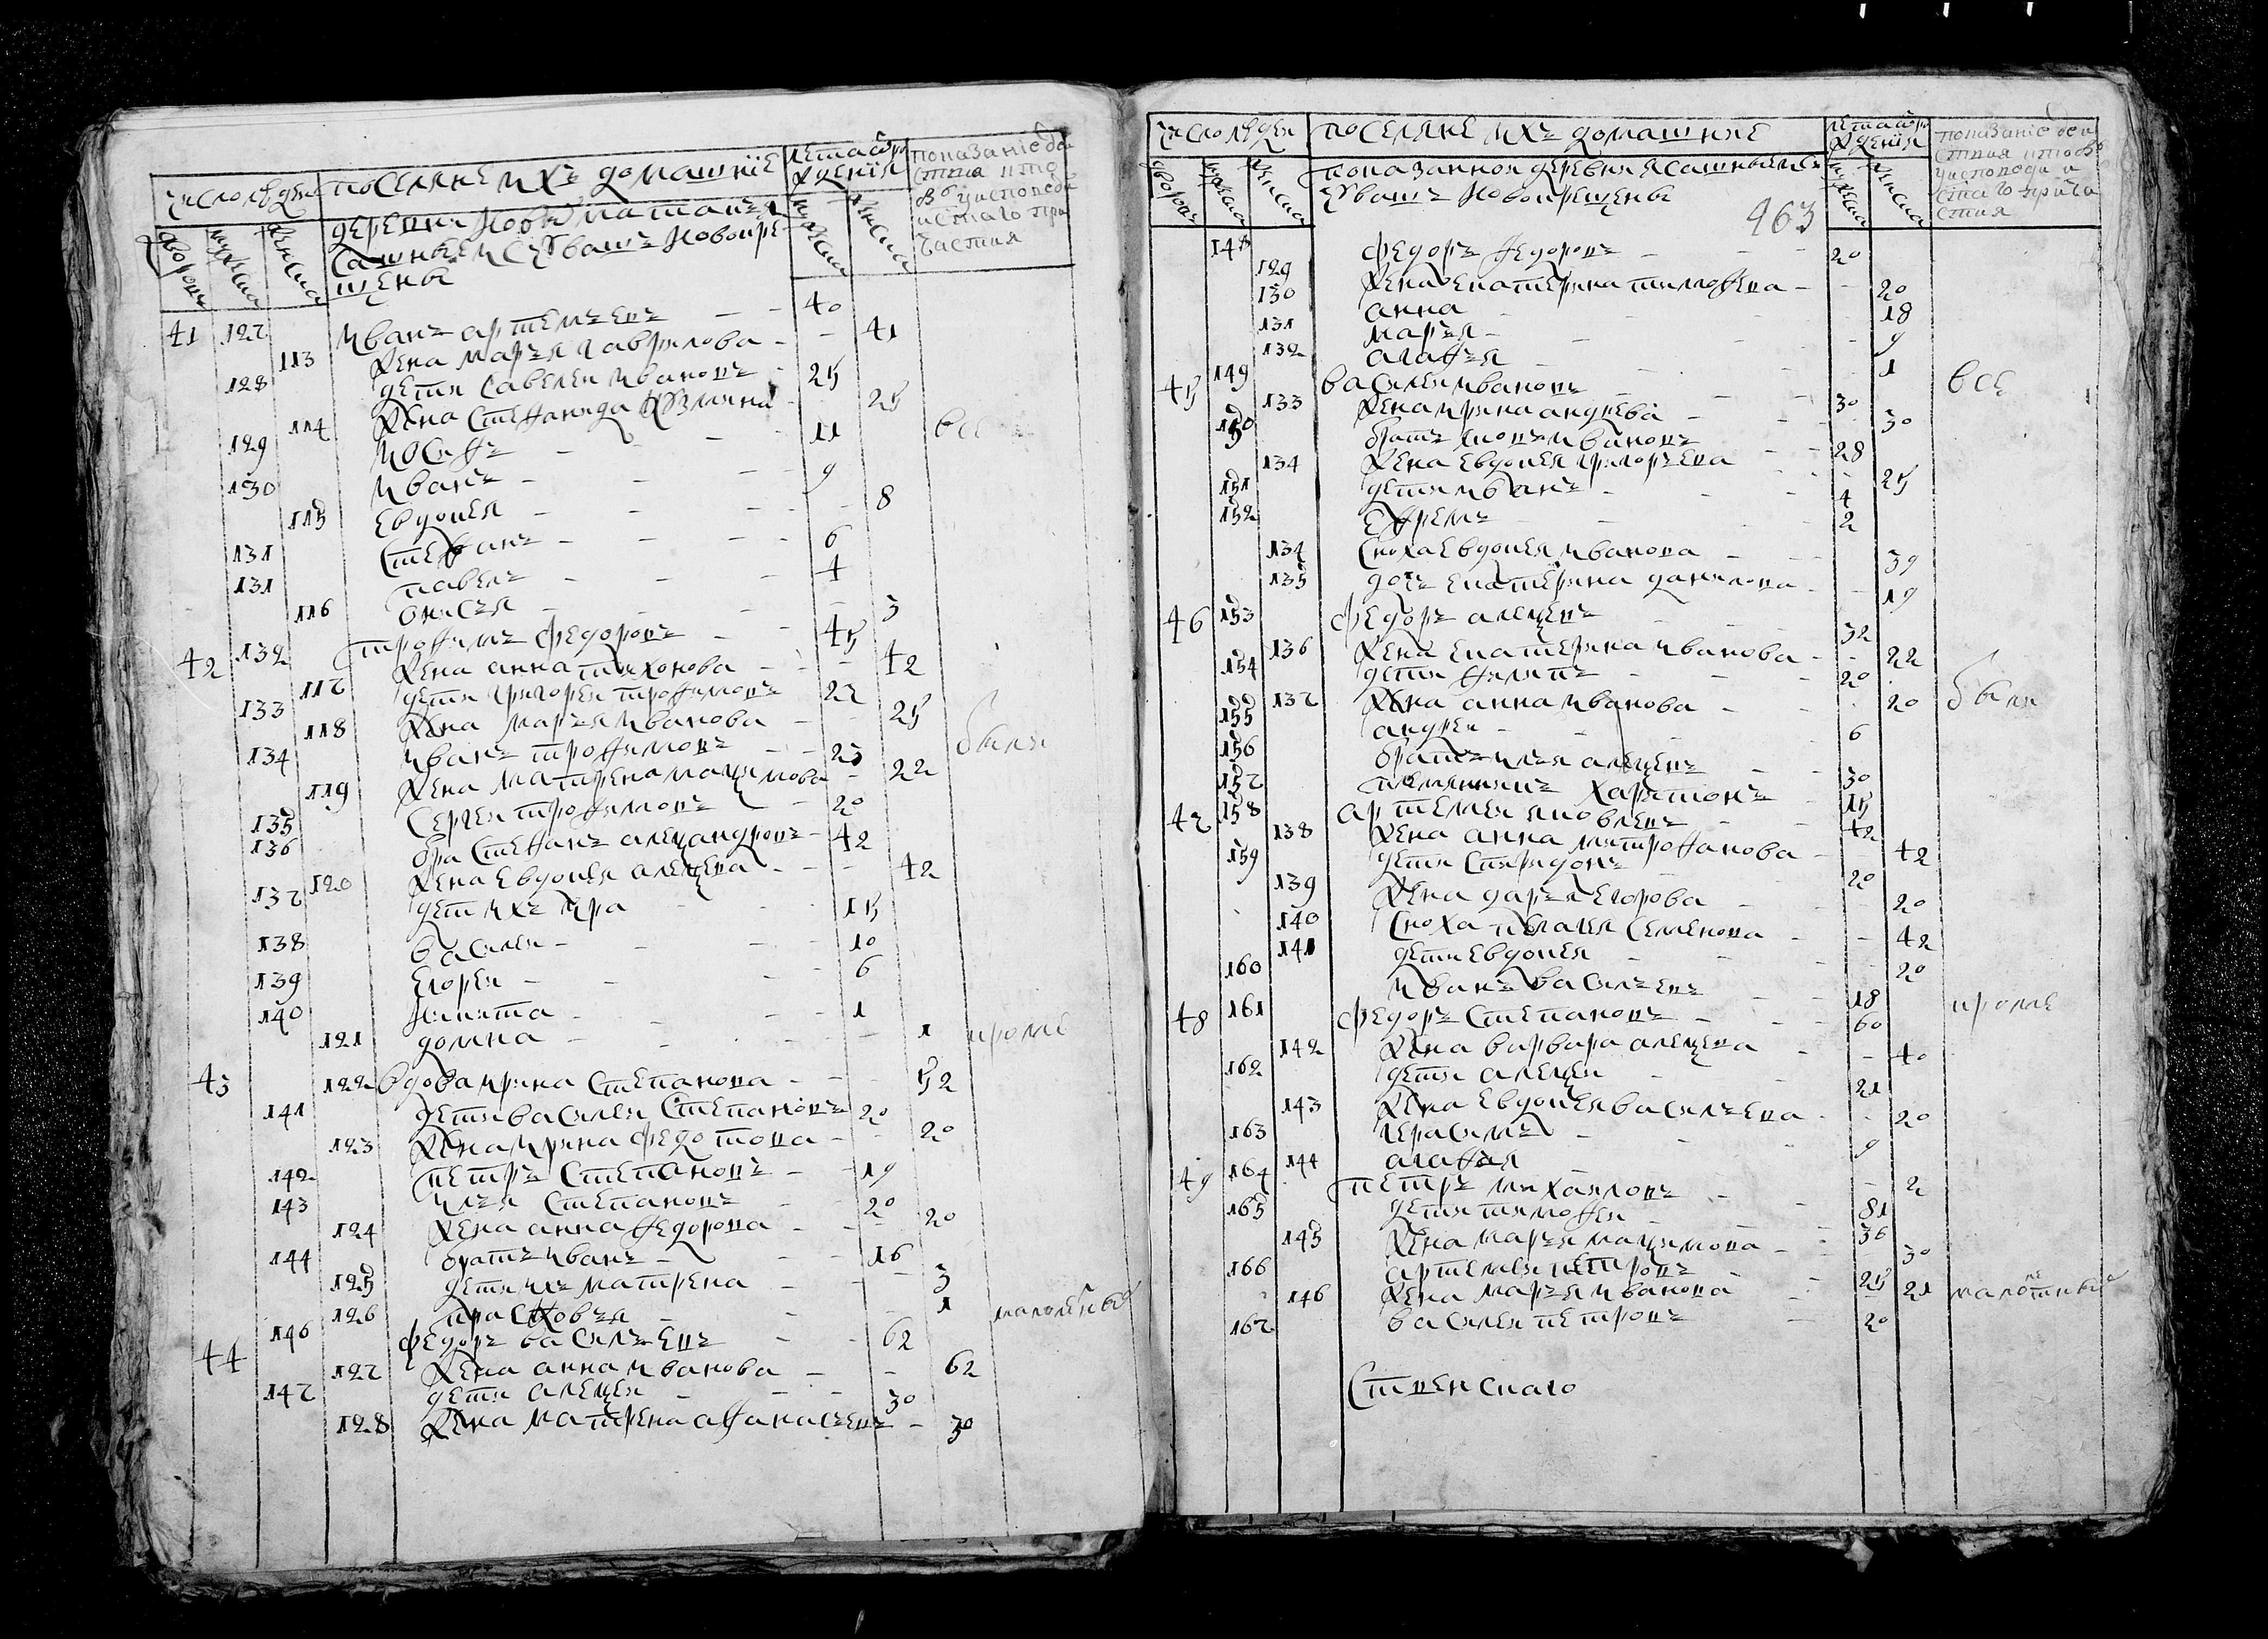 число люден поселяне ихъ домашние лета отро ждения показание бы
дворовъ мужска женска деревни
сашныем чуваш новокре
щены
41 127 иванъ артемъевъ - - 40
113 жена маръя гаврилова - - 41
128 дети савелеи ивановъ - 25
114 жена стефанида кузмина - 25
129 иосифъ - - 11 все
130 иванъ - - 9
115 евдокея - - 8
131 стефанъ - - 6
131 павелъ - - 4
116 анисья - - 3
42 132 трофимъ федоровъ - 45
117 жена анна тихонова - - 42
133 дети григореи трофимовъ 27
118 жена маръя иванова - - 25
134 иванъ трофимовъ - - 23 были
119 жена матрена максимова - 22
135 сергеи трофимовъ - 20
136 бра стефанъ александровъ - 42
120 жена евдокея алексева - - 42
137 дети ихъ - 15
138 василеи - - 10
139 егореи - - 6
140 никита - - 1
121 домна - - 1 кроме
43 122 вдова ирина степанова - - 52
141 дети василеи степановъ 20
123 жена ирина федотова - - 20
142 петръ степановъ - - 19
143 илья степановъ - - 20
124 жена анна федорова - - 20
144 братъ иванъ - - 16
125 дети ихъ матрена - - 3
126 прасковья - - 1 малолетные
44 146 федоръ василъевъ - - 62
127 жена анна иванова - - 62
147 дети алексеи - - 30
128 жена матрена афанасъева - 30
число люден поселяне ихъ домашние лета отро ждения показание
дворовъ мужска женска показаннои деревни ясашныем
чуваш новокрещены
463
148 федоръ федоровъ - - 20
129 жена екатерина тимофева - - 20
130 анна - - 18
131 маръя - - 9
132 агафья - - 1
45 149 василеи ивановъ - - 30 все
133 жена ирина андреева - - 30
150 братъ ивановъ - - 28
134 жена евдокея григоръева - 25
151 дети иванъ - - 4
152 ефремъ - - 2
134 сноха евдокея иванова - - 39
135 дочь екатерина данилова - - 19
46 153 федоръ алексевъ - - 32
136 жена екатерина иванова - - 22
154 дети филипъ - - 20
137 жена анна иванова - - 20 были
155 андреи - - 6
156 братъ илья алексевъ - - 30
157 племянникъ харитонъ - 15
47 158 артемеи яковлевъ - - 42
138 жена анна митрофанова - - 42
159 дети спиридонъ - - 20
139 жена даръя егорова - - 20
140 сноха пелагея семенова - - 42
141 дети евдокея - - 20
160 иванъ василъевъ - - 18
48 161 федоръ степановъ - - 60 кроме
142 жена варвара алексева - - 40
162 дети алексеи - - 21
143 жена евдокея василъева - - 20
163 герасимъ - - 9
144 агафья - - 2
49 164 петръ михаиловъ - - 81
165 дети тимофеи - - 36
145 жена маръя максимова - - 30
166 артемеи петровъ - 25
146 жена маръя иванова - 21 малолетные
167 василеи петровъ - 20